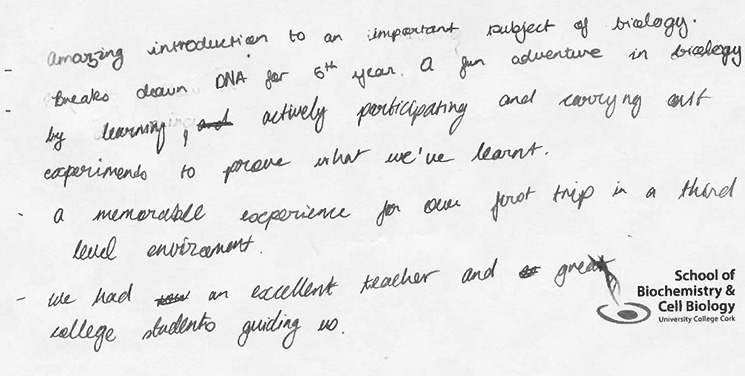 amazing introduction to an important subject of biology.
- Breaks down DNA for 5th year. A fun adventure in biology
- by learning, and actively participating and carrying out
experiments to prove what we've learnt.
- a memorable experience for our first trip in a third
level enviroment.
- we had an excellent teacher and great
college students guiding us.
School of
Biochemistry &
Cell Biology
University College Cork